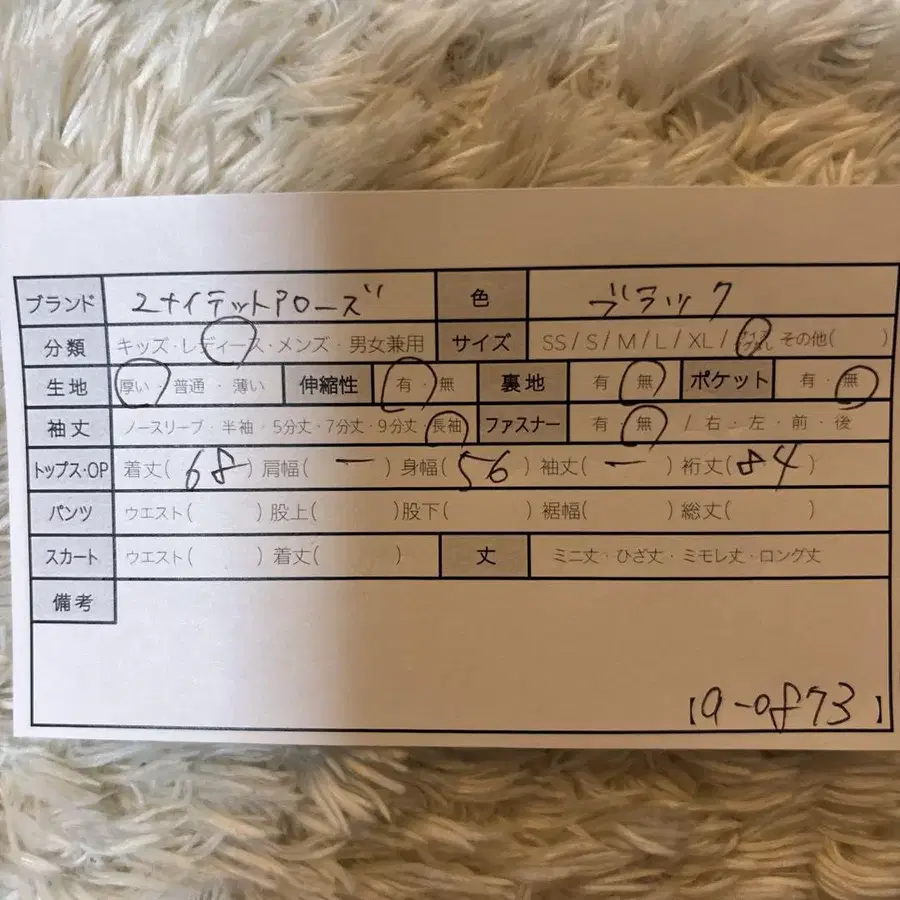 ブランド ユナイテットアローズ 色 ブラック
分類 キッズ・レディース・メンズ・男女兼用 サイズ SS / S / M / L / XL / その他( )
生地 厚い・普通・薄い 伸縮性 有・無 裏地 有・無 ポケット 有・無
袖丈 ノースリーブ・半袖・5分丈・7分丈・9分丈・長袖 ファスナー 有・無 / 右・左・前・後
トップス・OP 着丈( 68 ) 肩幅( ー ) 身幅( 56 ) 袖丈( ー ) 裄丈( 84 )
パンツ ウエスト( ) 股上( ) 股下( ) 裾幅( ) 総丈( )
スカート ウエスト( ) 着丈( ) 丈 ミニ丈・ひざ丈・ミモレ丈・ロング丈
備考
【a-0873】